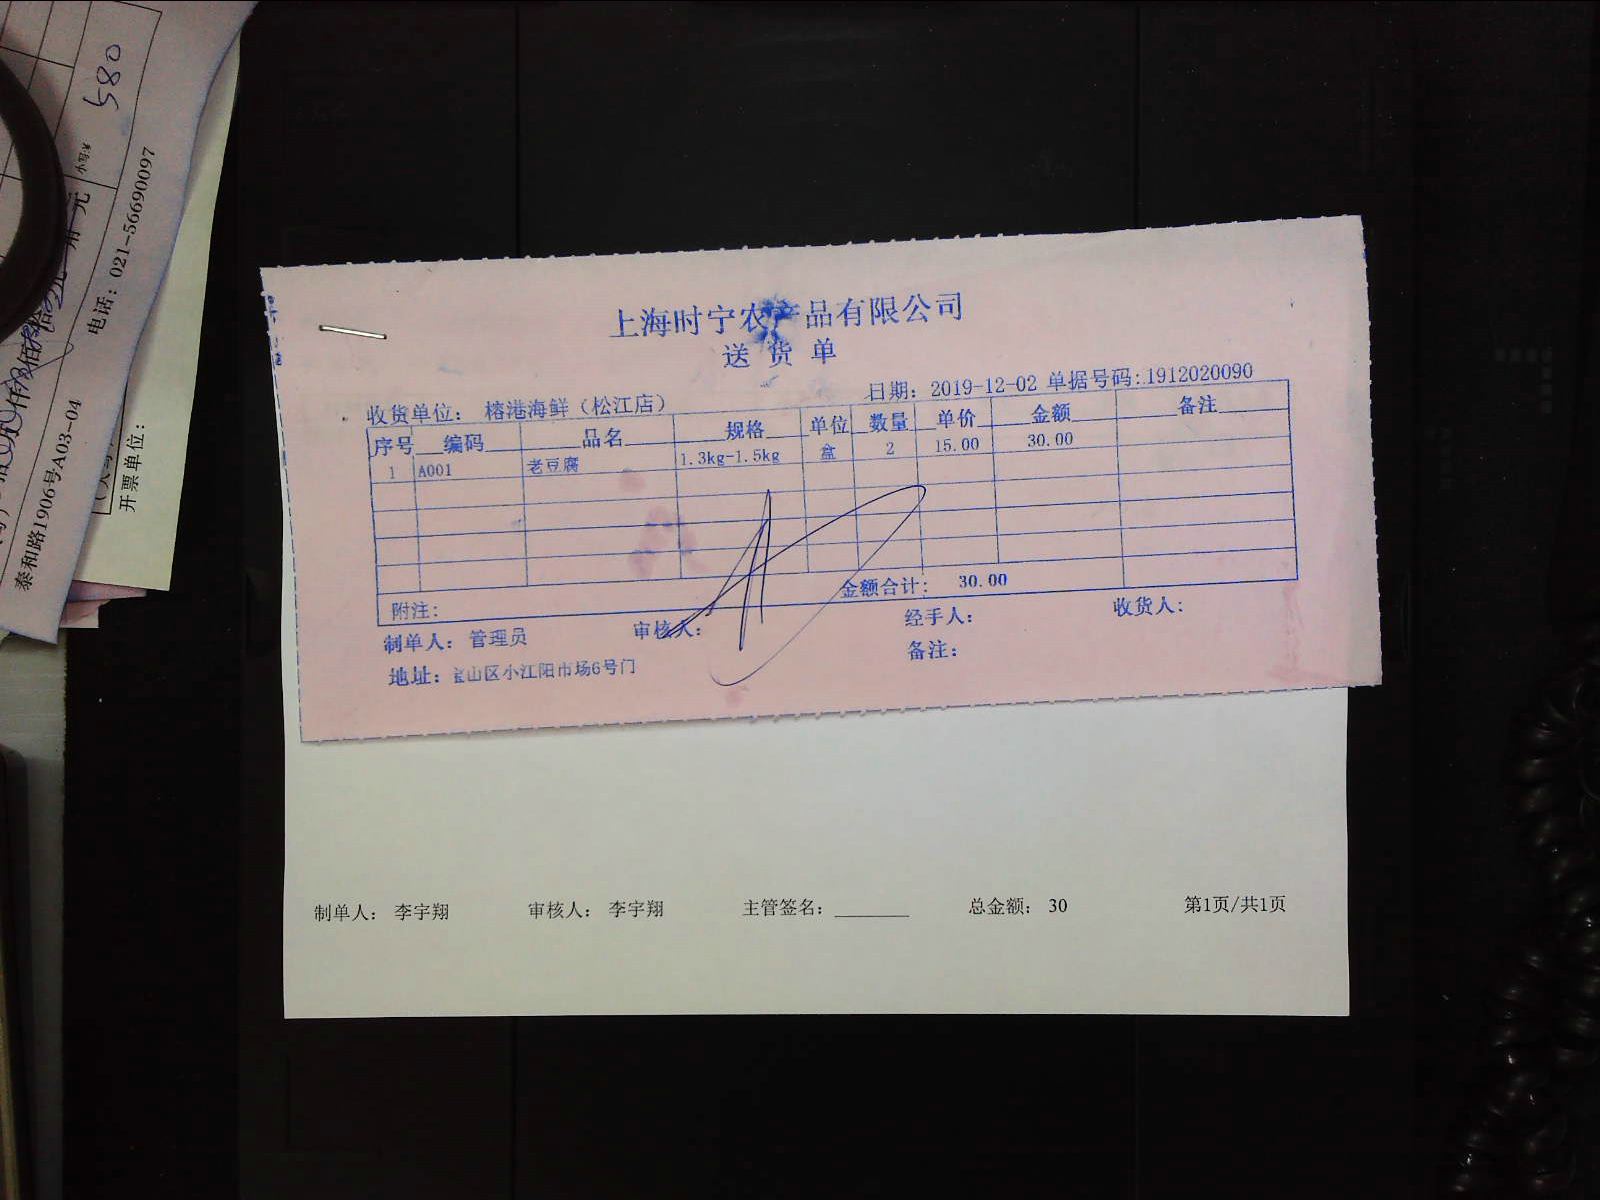 上海时宁农产品有限公司
送货单
收货单位: 榕港海鲜（松江店） 日期: 2019-12-02 单据号码:1912020090
序号 编码 品名 规格 单位 数量 单价 金额 备注
1 A001 老豆腐 1.3kg-1.5kg 盒 2 15.00 30.00
附注: 金额合计: 30.00
制单人: 管理员 审核人: 经手人: 收货人:
地址: 宝山区小江阳市场6号门 备注:
制单人: 李宇翔 审核人: 李宇翔 主管签名: 总金额: 30 第1页/共1页
580
电话: 021-56690097
泰和路1906号A03-04
开票单位: